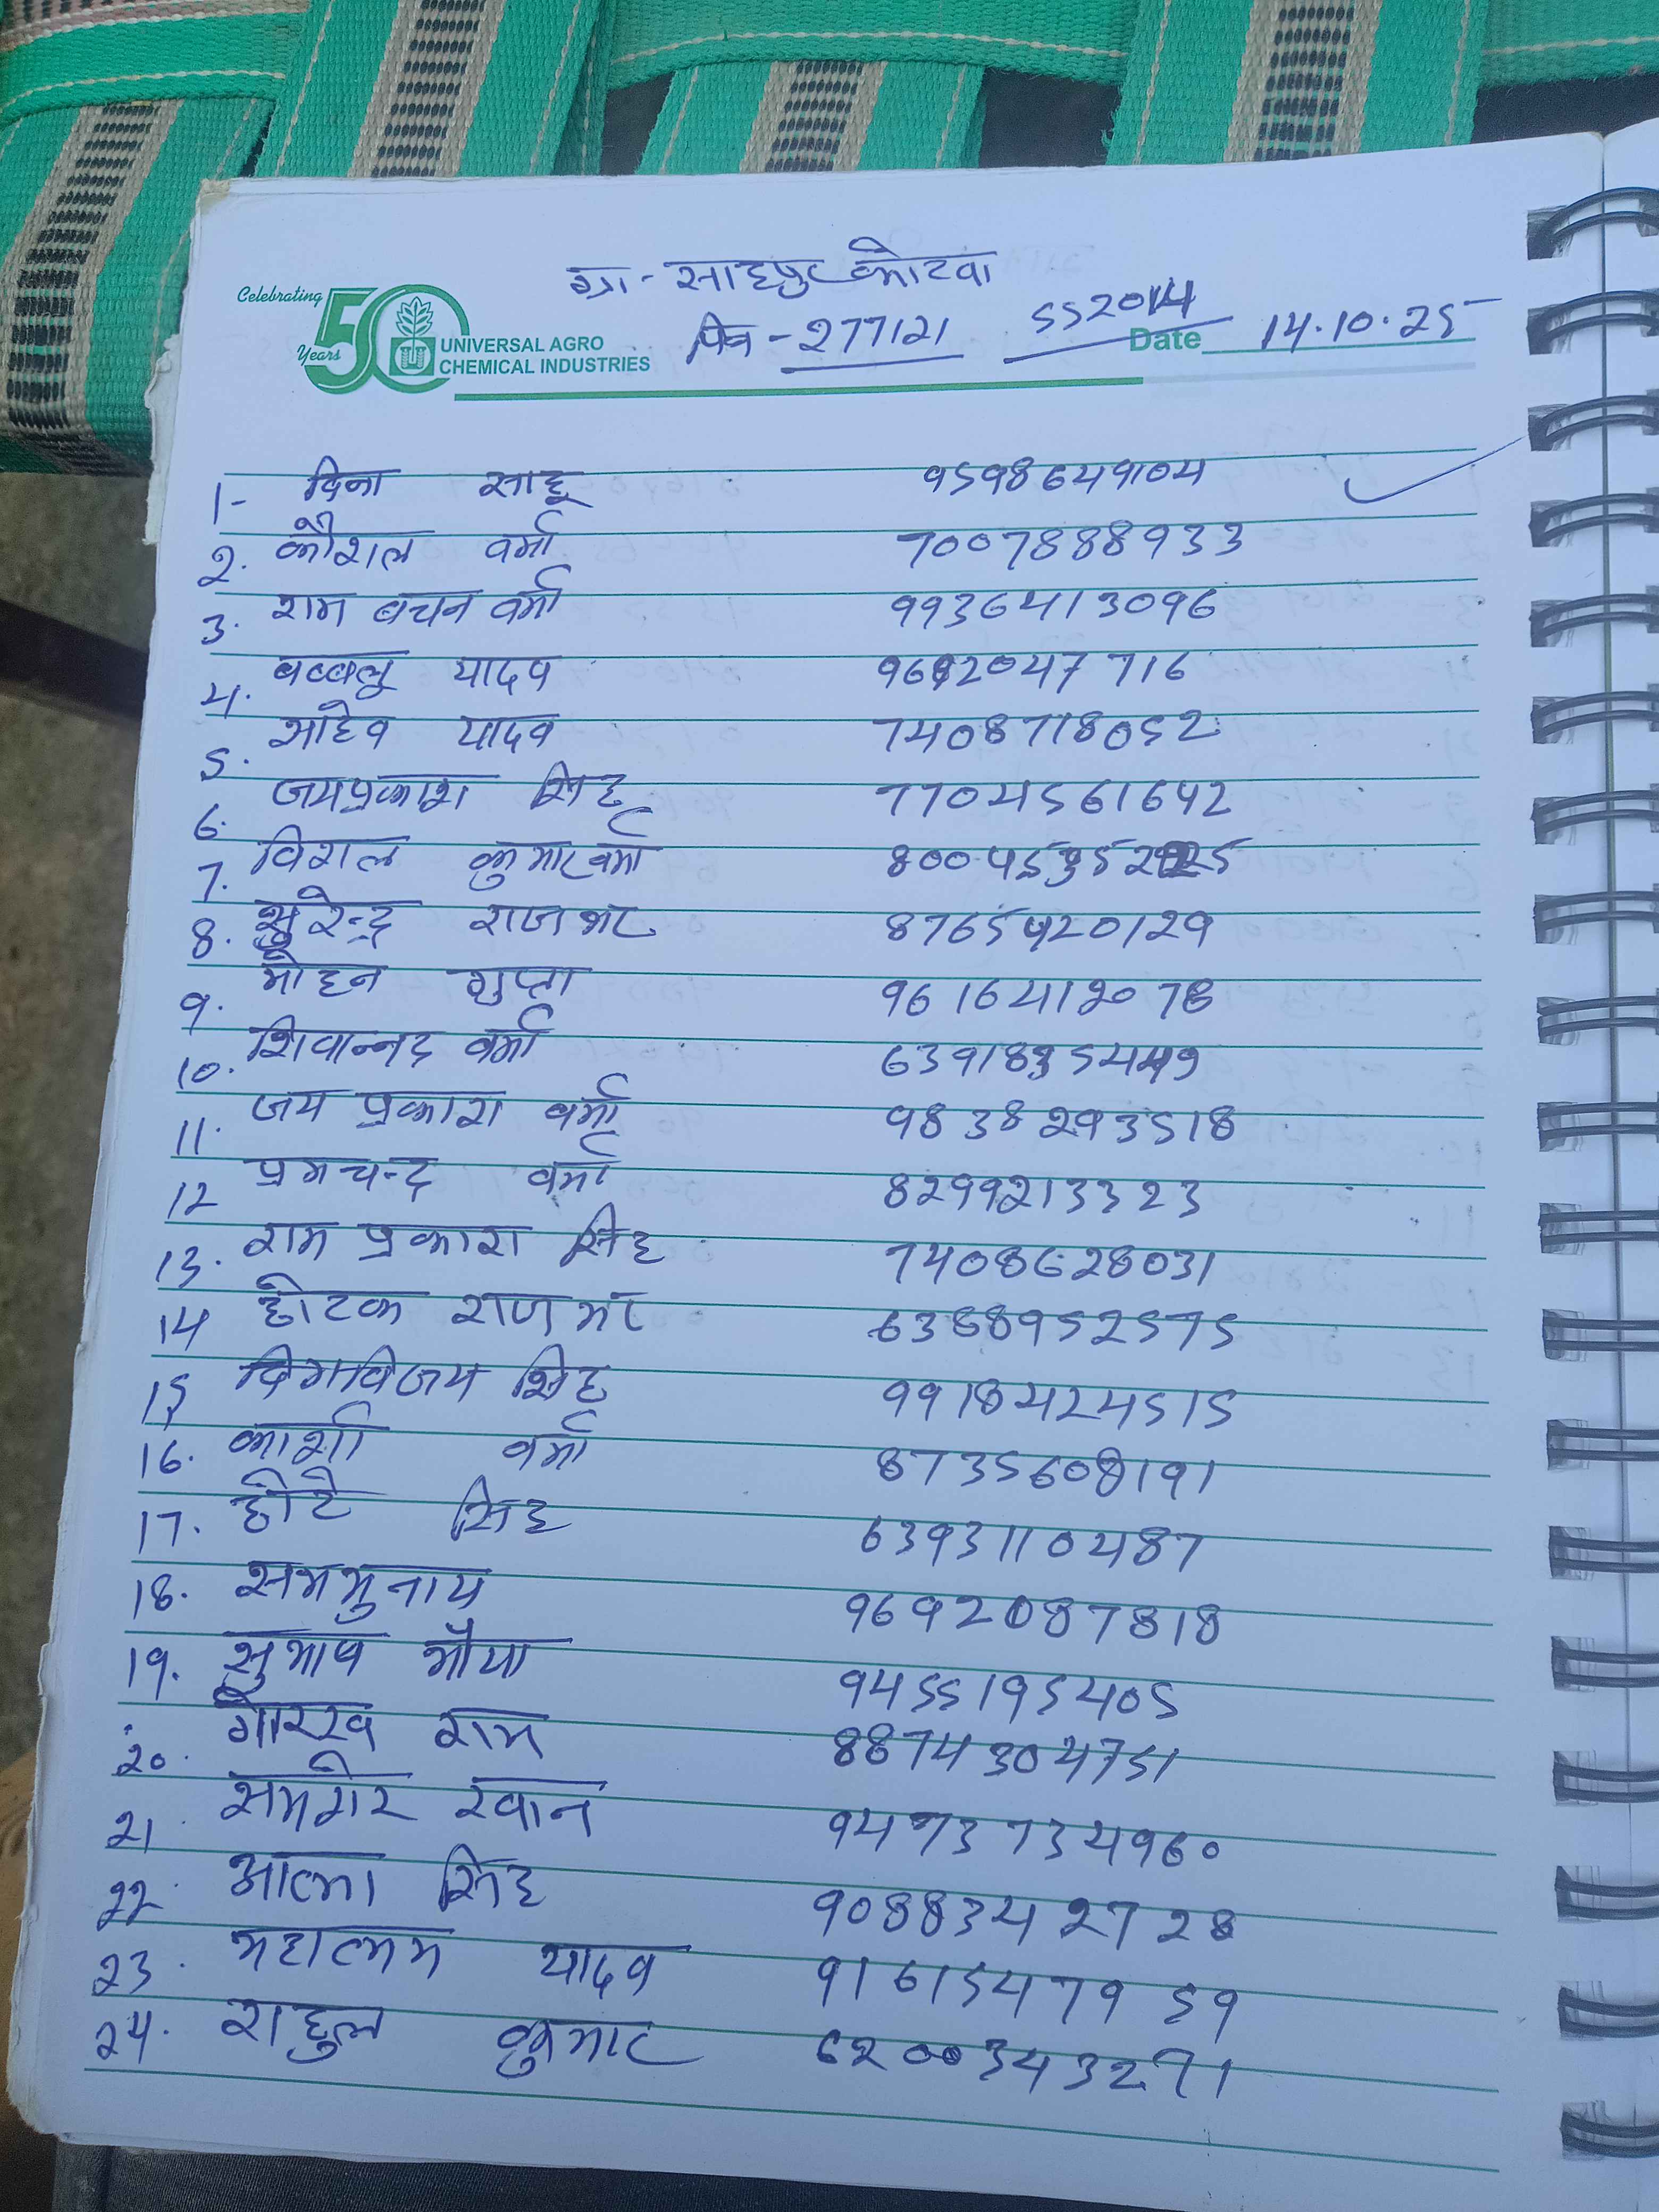 ग्रा - साहपुर कोटवा
Celebrating 50 Years
UNIVERSAL AGRO
CHEMICAL INDUSTRIES
पिन - 277121
SS2014
Date 14.10.25
1- दिना साहू 9598649104
2. कौशल वर्मा 7007888933
3. राम बचन वर्मा 9936413096
4. बब्बलु यादव 9692047716
5. साहेव यादव 7408718052
6. जयप्रकाश सिंह 7704561642
7. विशाल कुमार वर्मा
8. सुरेन्द्र राजभर 8765420129
9. मोहन गुप्ता 9616412078
10. शिवान्नद वर्मा
11. जय प्रकाश वर्मा 9838293518
12 प्रमचन्द वर्मा 8299213323
13. राम प्रकाश सिंह 7408628031
14 छोटक राजभर 6388952575
15 दिगविजय सिंह 9918424515
16. काशी वर्मा 8735608191
17. छोटे सिंह 6393110487
18. सम्भुनाथ 9692087818
19. सुभाष मौर्या 9455195405
20. गोरख राम 8874304751
21 समशेर खान 9473734960
22 आत्मा सिंह 9088342728
23. महात्मम यादव 9161547959
24. राहुल कुमार 6200343271